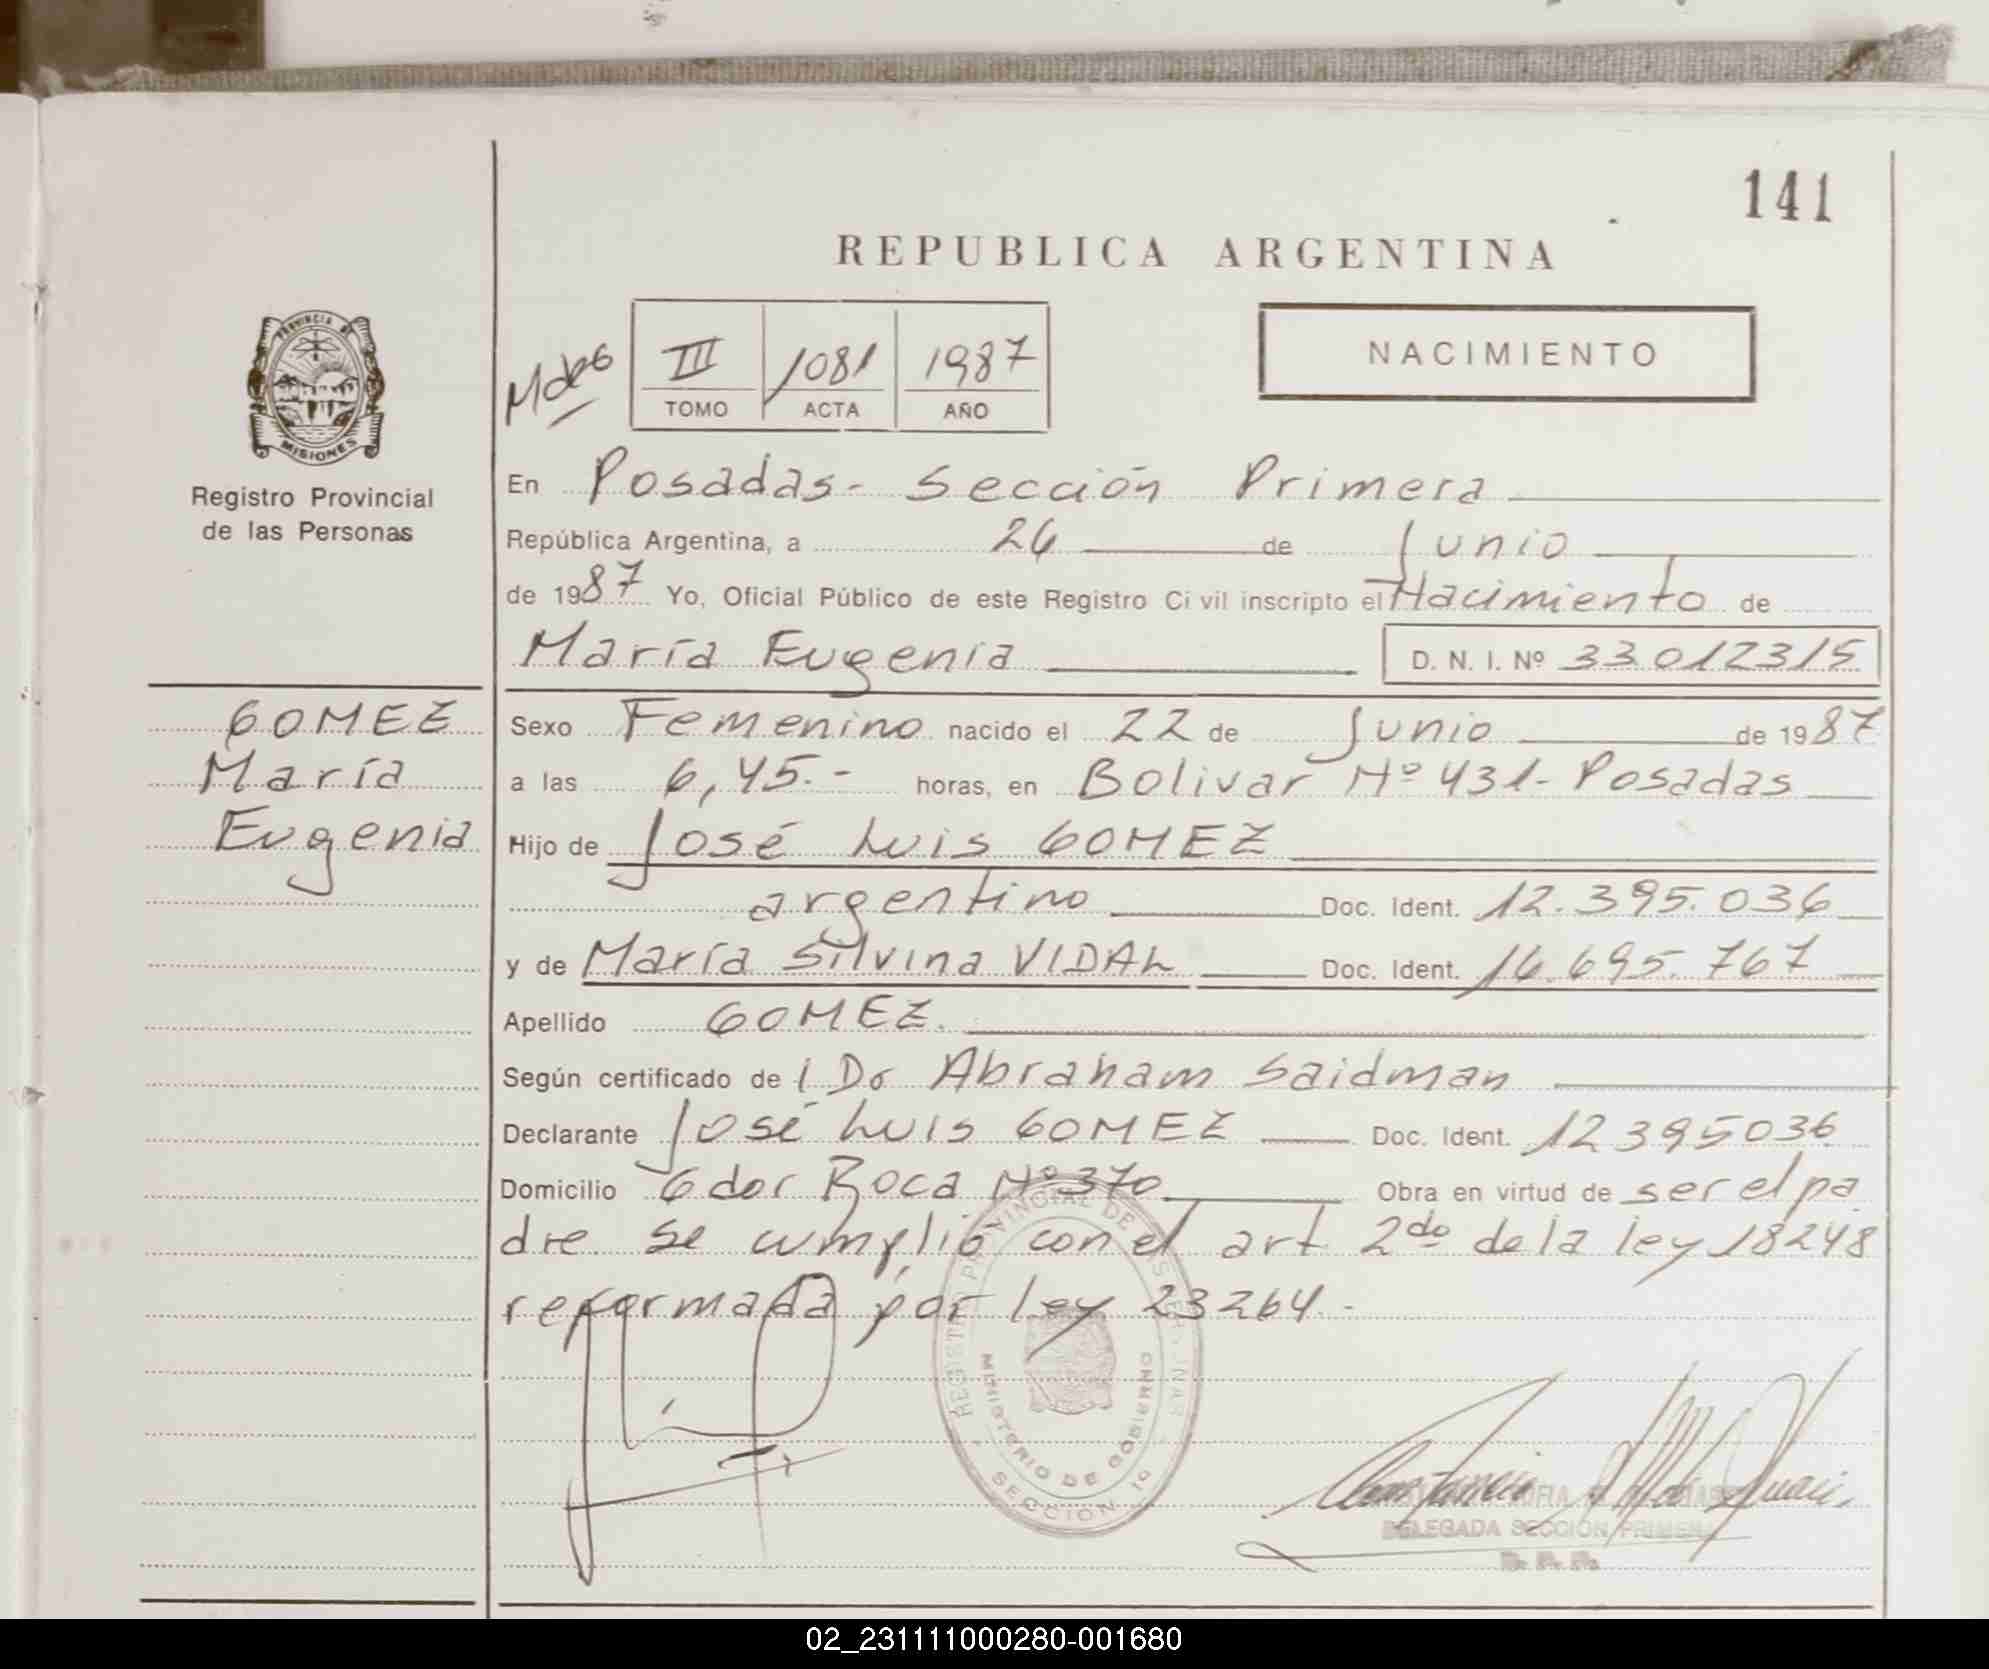 141
REPUBLICA ARGENTINA
PROVINCIA DE
MISIONES
Registro Provincial
de las Personas
III 1081 1987
TOMO ACTA AÑO
NACIMIENTO
En Posadas- Sección Primera
República Argentina, a 26 de Junio
de 1987 Yo, Oficial Público de este Registro Civil inscripto el Nacimiento de
María Eugenia D. N. I. Nº 33012315
GOMEZ
María
Eugenia
Sexo Femenino nacido el 22 de Junio de 1987
a las 6,45.- horas, en Bolivar Nº 431- Posadas
Hijo de José Luis GOMEZ
argentino Doc. Ident. 12.395.036
y de María Silvina VIDAL Doc. Ident. 16.695.767
Apellido GOMEZ.
Según certificado de l Dr Abraham Saidman
Declarante José Luis GOMEZ Doc. Ident. 12395036
Domicilio Gdor Roca Nº 370 Obra en virtud de ser el pa
dre se cumplió con el art 2do de la ley 18248
reformada por ley 23264.-
MINISTERIO DE GOBIERNO
DELEGADA SECCION PRIMERA
02_231111000280-001680